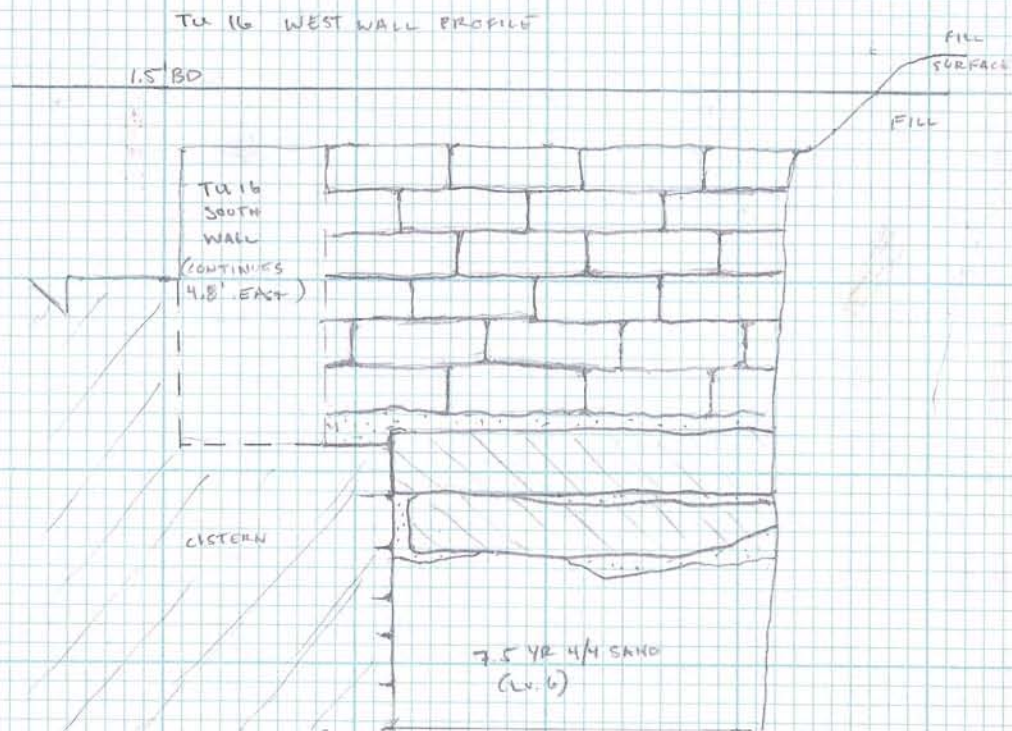 TU 16 WEST WALL PROFILE
FILL
SURFACE
1.5' BD
FILL
TU 16
SOUTH
WALL
(CONTINUES
4.8' EAST)
CISTERN
7.5 YR 4/4 SAND
(LV. 6)